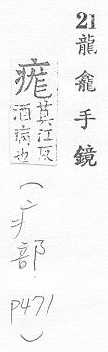 21 龍龕手鏡
痝莫江反
酒病也
(疒部 P471)